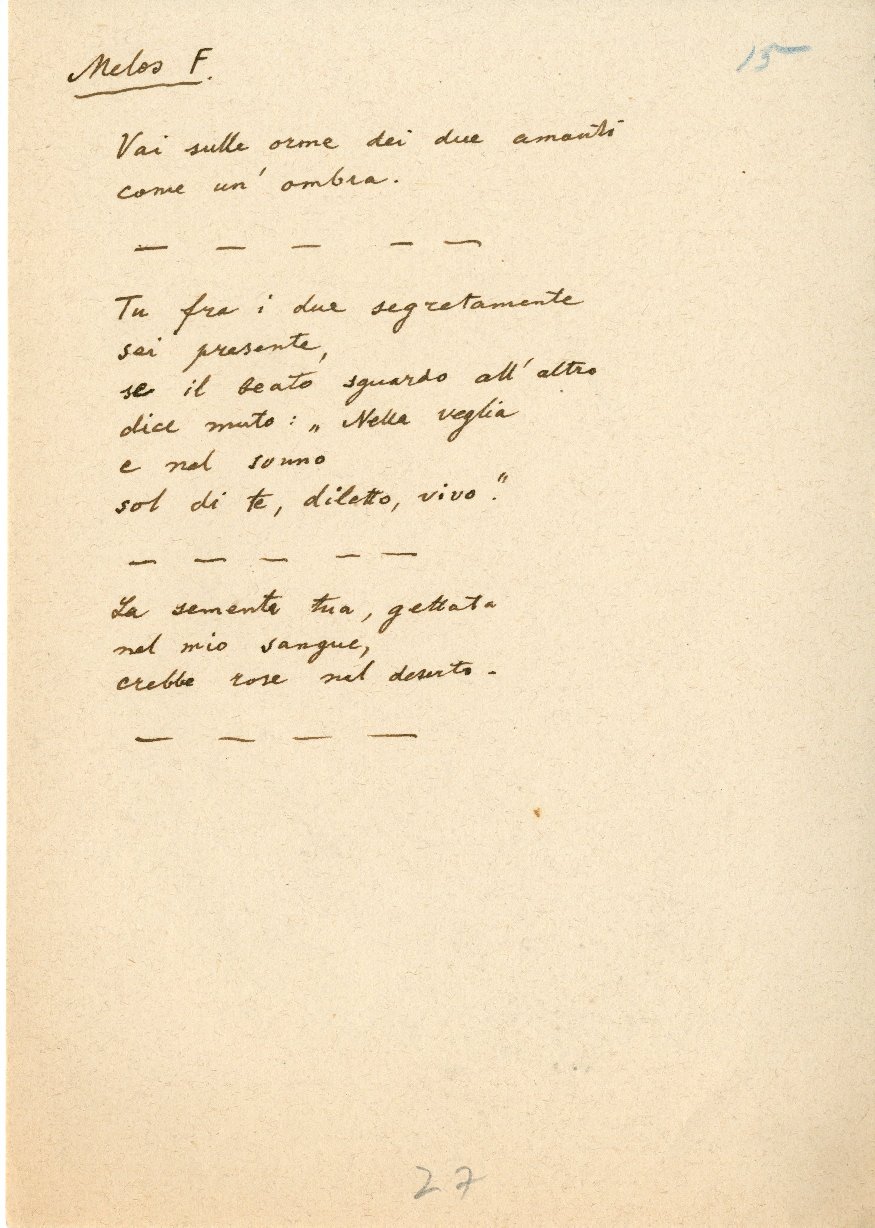 Melos F.
15
Vai sulle orme dei due amanti
come un' ombra.
— — — — —
Tu fra i due segretamente
sei presente,
se il beato sguardo all' altro
dice muto: „ Nella veglia
e nel sonno
sol di te, diletto, vivo."
— — — — —
La semente tua, gettata
nel mio sangue,
crebbe rose nel deserto.
— — — —
27